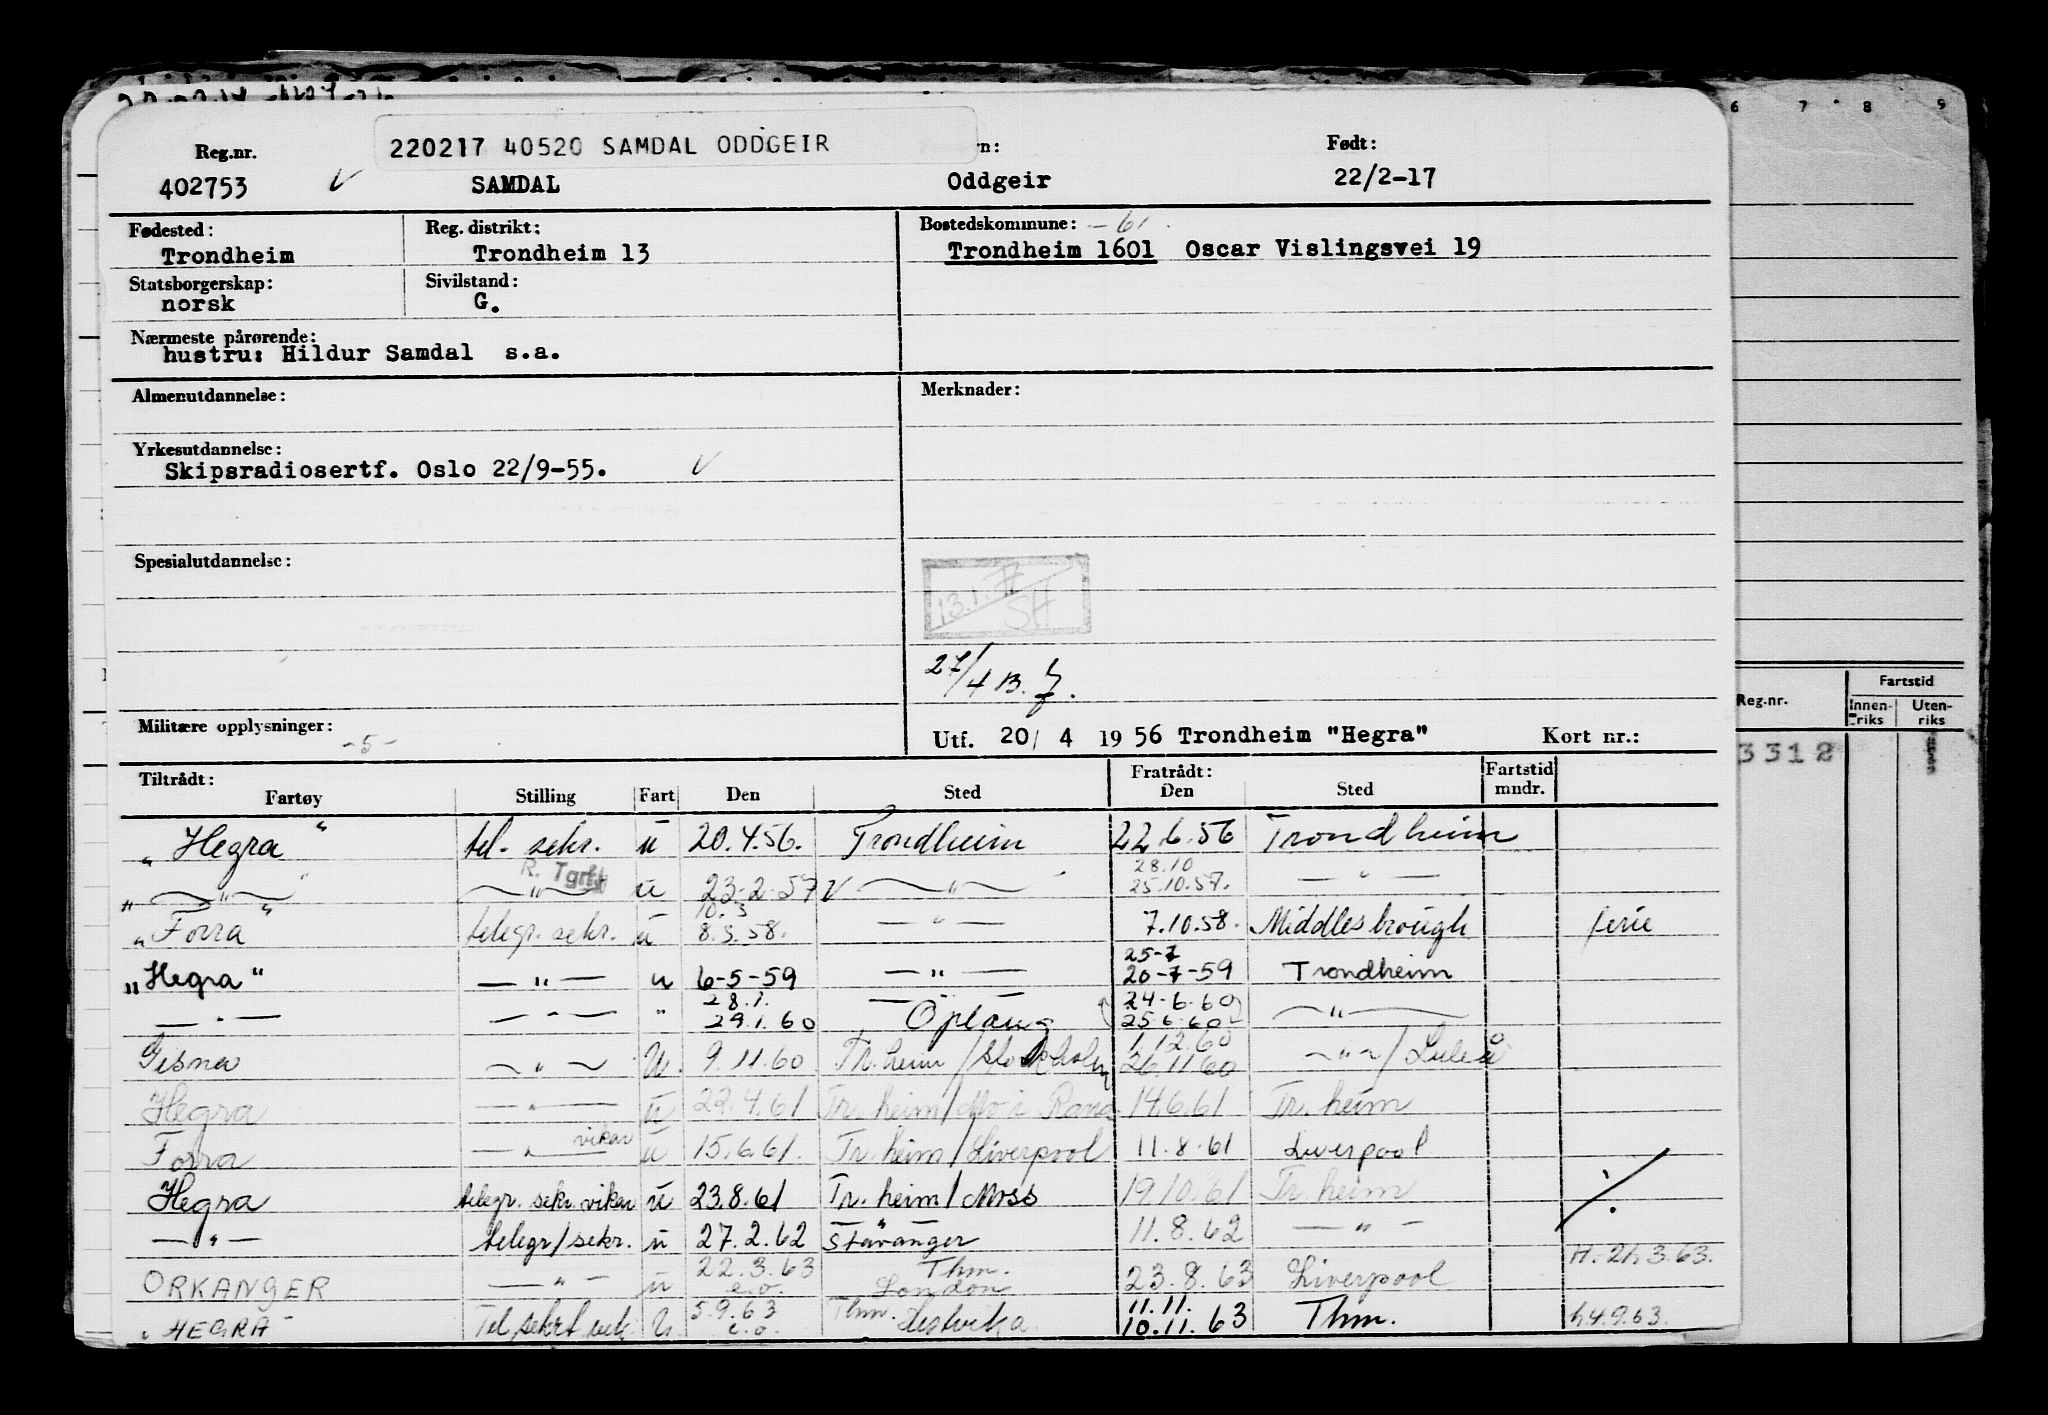 6 7 8 9
220217 40520 SAMDAL ODDGEIR
Reg.nr. n: Født:
402753 SAMDAL Oddgeir 22/2-17
Fødested: Reg. distrikt: Bostedskommune: -61.
Trondheim Trondheim 13 Trondheim 1601 Oscar Vislingsvei 19
Statsborgerskap: Sivilstand:
norsk G.
Nærmeste pårørende:
hustru: Hildur Samdal s.a.
Almenutdannelse: Merknader:
Yrkesutdannelse:
Skipsradiosertf. Oslo 22/9-55.
Spesialutdannelse:
SH
27/4 B.
Militære opplysninger: -5-
Utf. 20/ 4 1956 Trondheim "Hegra" Kort nr.:
Reg.nr. Fartstid
Innen-riks Uten-riks
3312
Tiltrådt: Fratrådt: Fartstid mndr.
Fartøy Stilling Fart Den Sted Den Sted
"Hegra" tel. sekr. u 20.4.56. Trondheim 22.6.56 Trondheim
R. Tgrf. 28.10
" — " — " — " — u 23.2.57 V — " — 25.10.57. — " —
10.3
"Forra" telegr. sekr. u 8.3.58. — " — 7.10.58. Middlesbrough ferie
25-7
"Hegra" — " — u 6-5-59 — " — 20-7-59 Trondheim
28.1. 24-6-60
— " — — " — " 29.1.60 Öpläng 25.6.60 — " —
1.12.60
Gisna — " — U. 9.11.60 Tr.heim/Stockholm 26.11.60 — " — /Luleå
Hegra — " — u 22.4.61 Tr.heim/Mo i Rana 14.6.61 Tr.heim
Forra — " — vikar u 15.6.61. Tr.heim/Liverpool 11.8.61 Liverpool
Hegra telegr. sekr. vikar u 23.8.61 Tr.heim/Moss 19.10.61 Tr.heim
— " — telegr/sekr. u 27.2.62 Stavanger 11.8.62 — " —
22.3.63 Thm. H. 21.3.63.
ORKANGER — " — u e.o. London 23.8.63 Liverpool
5.9.63 Thm. 11.11.
"HEGRA" Tel.sekrt vik. U e.o. Hestvika 10.11.63 Thm. h4.9.63.